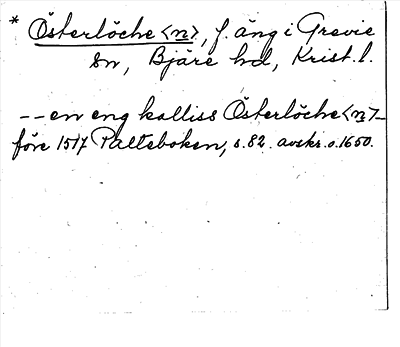 * Österlöche <n>, f. äng i Grevie
sn, Bjäre hd, Krist. l.
-- en eng kalliss Österlöche <n> –
före 1517 Palteboken, s. 82. avskr. o. 1650.